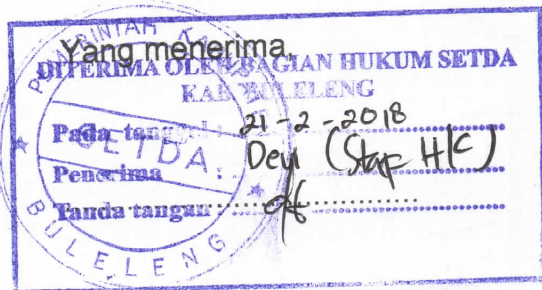 Yang menerima,
DITERIMA OLEH BAGIAN HUKUM SETDA
KAB BULELENG
Pada tanggal : 21-2-2018
Penerima : Devi (Staf H/C)
Tanda tangan :
PEMERINTAH KABUPATEN
SETDA.
BULELENG